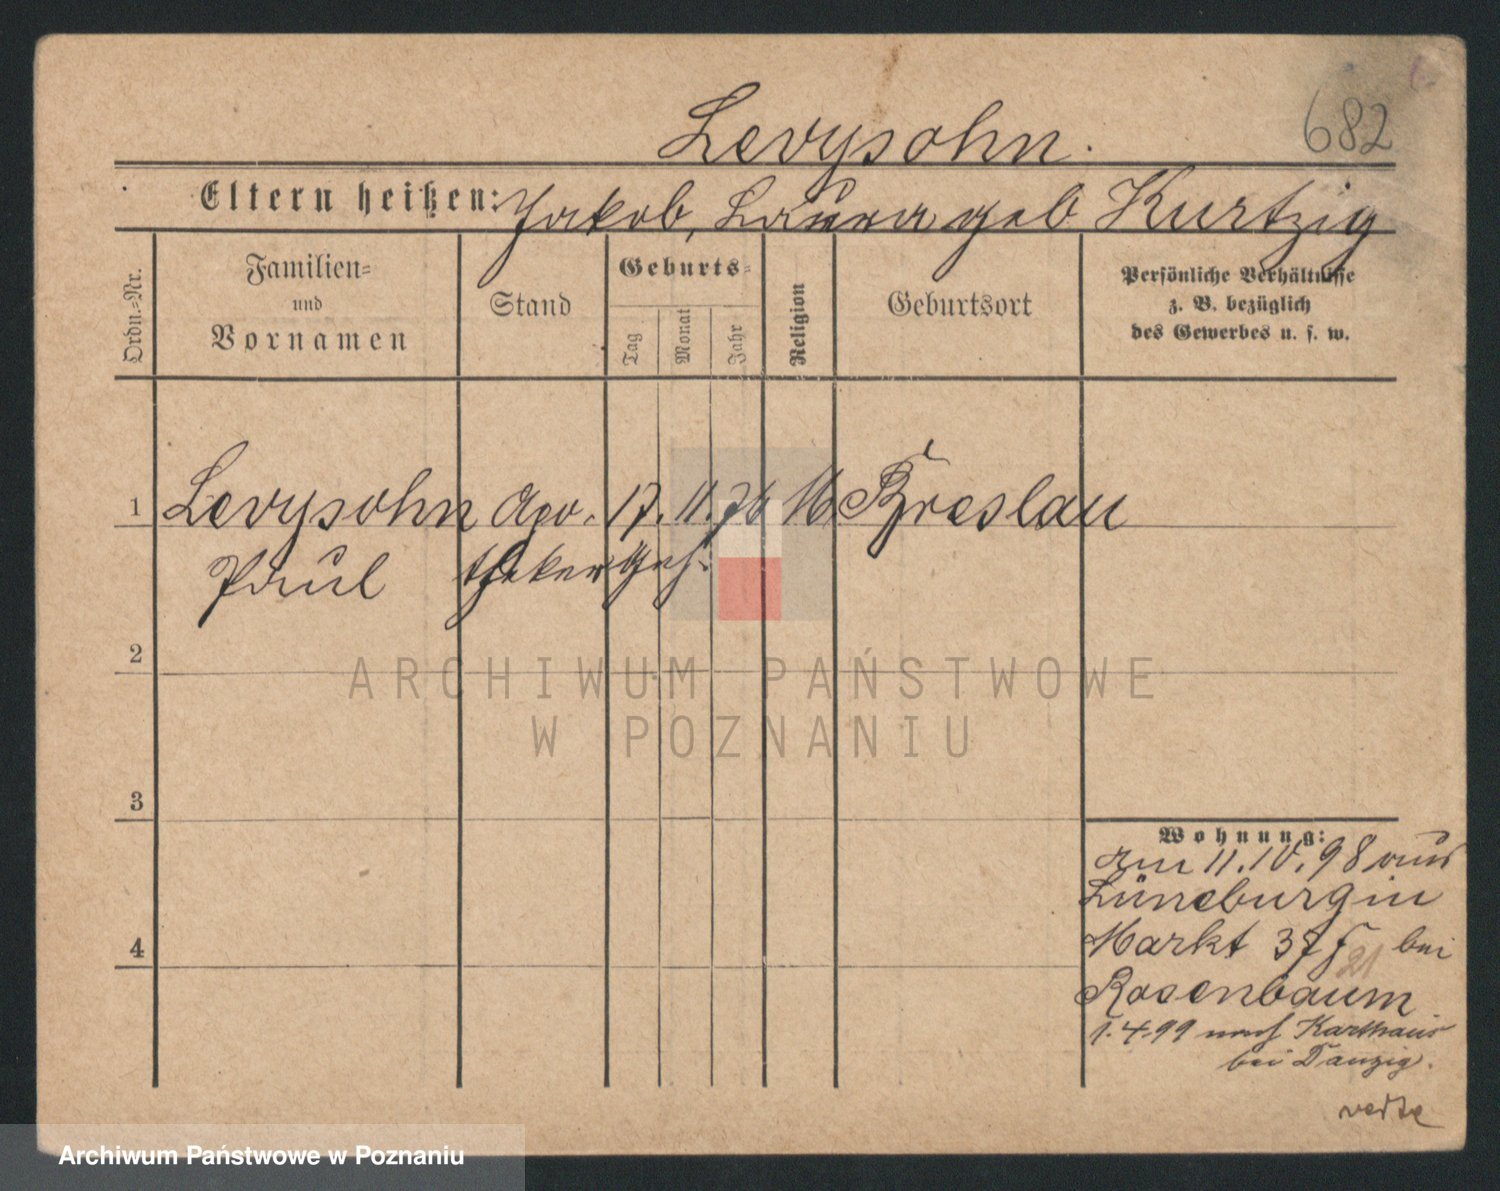 682
Levysohn.
Eltern heißen: Jakob, Laura geb Kurtzig
Ordn.-Nr.
Familien-
und
Vornamen
Stand
Geburts-
Tag
Monat
Jahr
Religion
Geburtsort
Persönliche Verhältnisse
z. B. bezüglich
des Gewerbes u. s. w.
1 Levysohn Apo. 17. 11. 76 Breslau
Paul thekergeh.
2
3
4
Wohnung:
am 11.IV.98 aus
Lüneburg in
Markt 37 bei
21
Rosenbaum
1.4.99 nach Karthaus
bei Danzig.
verte
ARCHIWUM PAŃSTWOWE
W POZNANIU
Archiwum Państwowe w Poznaniu